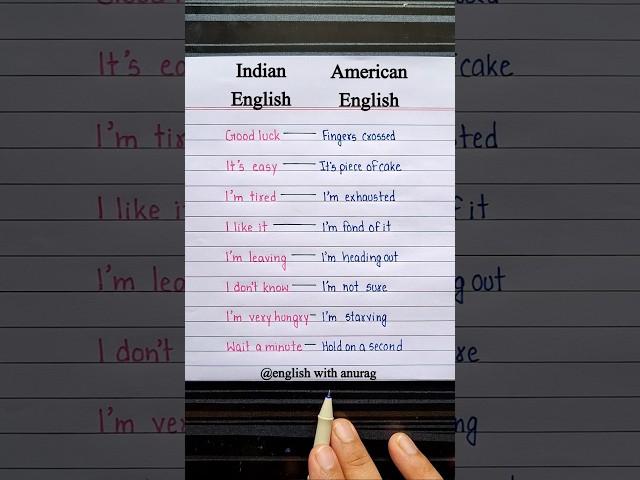 Indian American
English English
Good luck — Fingers crossed
It's easy — It's piece of cake
I'm tired — I'm exhausted
I like it — I'm fond of it
I'm leaving — I'm heading out
I don't know — I'm not sure
I'm very hungry - I'm starving
Wait a minute — Hold on a second
@english with anurag